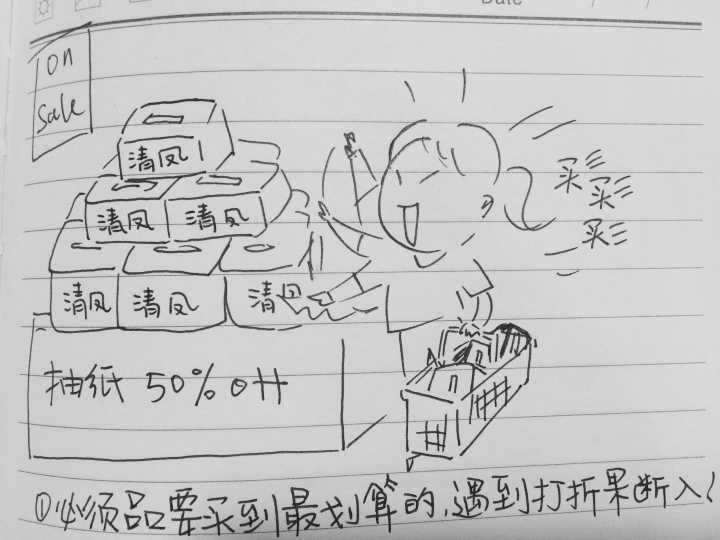 Date
on
sale
清风
清风
清风
清风
清风
清风
买
买
买
抽纸 50% off
①必须品要买到最划算的,遇到打折果断入!